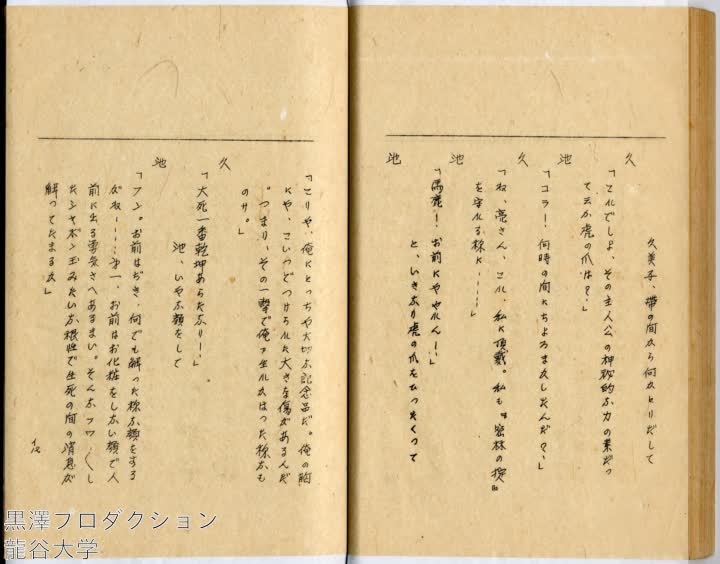 久美子、帯の間から何かとりだして
久
「これでしよ、その主人公の神秘的な力の素だつ
て云ふ虎の爪は？」
池
「コラー！何時の間にちよろまかしたんだ？」
久
「ね、亮さん、これ、私に頂戴。私も『密林の掟』
を守れる様に……」
池
「馬鹿！お前にややれん！」
と、いきなり虎の爪をひつたくつて
池
「こりや、俺にとつちや大切な記念品だ。俺の胸
にや、こいつでつけられた大きな傷があるんだ
。つまり、その一撃で俺ァ生れかはつた様なも
のサ。」
久
「大死一番乾坤あらたなり！」
池、いやな顔をして
池
「フン。お前はぢき、何でも解つた様な顔をする
がね……第一、お前はお化粧をしない顔で人
前に出る勇気さへあるまい。そんなフワ〳〵し
たシヤボン玉みたいな根性で生死の間の消息が
解つてたまるか」
黒澤プロダクション
龍谷大学